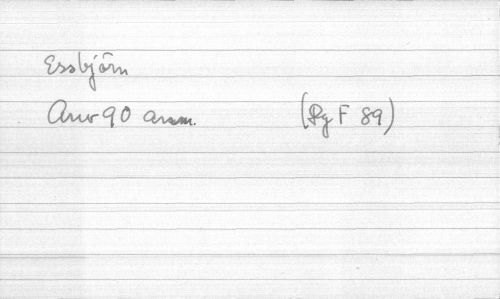 Essbjörn
Anv 90 anm. (Rg F 89)